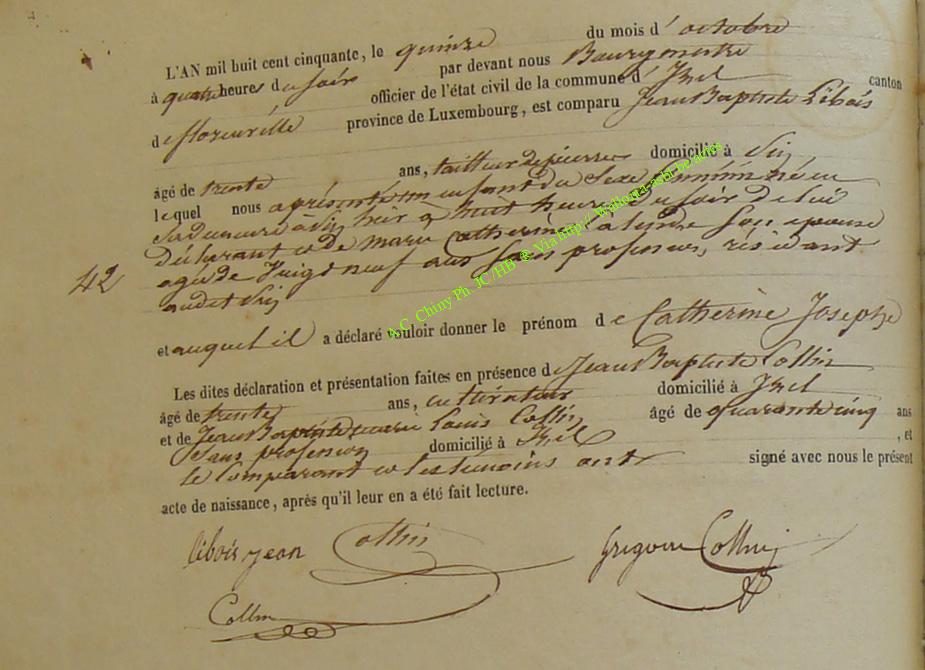 L'AN mil huit cent cinquante, le quinze du mois d'octobre
à quatre heures du soir par devant nous Bourgmestre
officier de l'état civil de la commune d'Izel canton
de florenville province de Luxembourg, est comparu Jean Baptiste Libois
âgé de trente ans, tailleur de pierres domicilié à
lequel nous a présenté un enfant du Sexe féminin né en
Sa demeure à hier a huit heures du soir de lui
Déclarant et de marie Catherine Son epouse
agée de Vingt neuf ans Sans profession, résidant
audit
42
et auquel il a déclaré vouloir donner le prénom de Catherine Josephe
Les dites déclaration et présentation faites en présence de Jean Baptiste Collin
âgé de trente ans, cultivateur domicilié à Izel
et de Jean Baptiste marie Louis Collin âgé de quarante cinq ans
Sans profession domicilié à Izel , et
le Comparant et les témoins ont signé avec nous le présent
acte de naissance, après qu'il leur en a été fait lecture.
libois jean Collin Gregoire Collin
Collin
A.C. Chiny Ph JC/HB @ Via http://